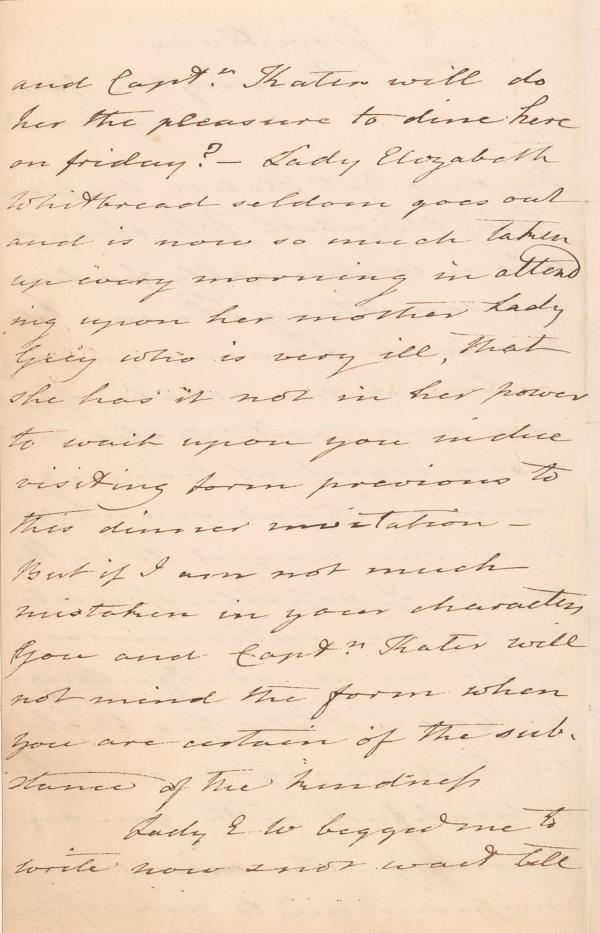 and Captn. Kater will do
her the pleasure to dine here
on friday? — Lady Elizabeth
Whitbread seldom goes out
and is now so much taken
up every morning in attend
ing upon her mother Lady
Grey who is very ill, that
she has it not in her power
to wait upon you in due
visiting form previous to
this dinner invitation —
But if I am not much
mistaken in your characters
You and Captn. Kater will
not mind the form when
you are certain of the sub-
stance of the kindness
Lady E W begged me to
write now & not wait till